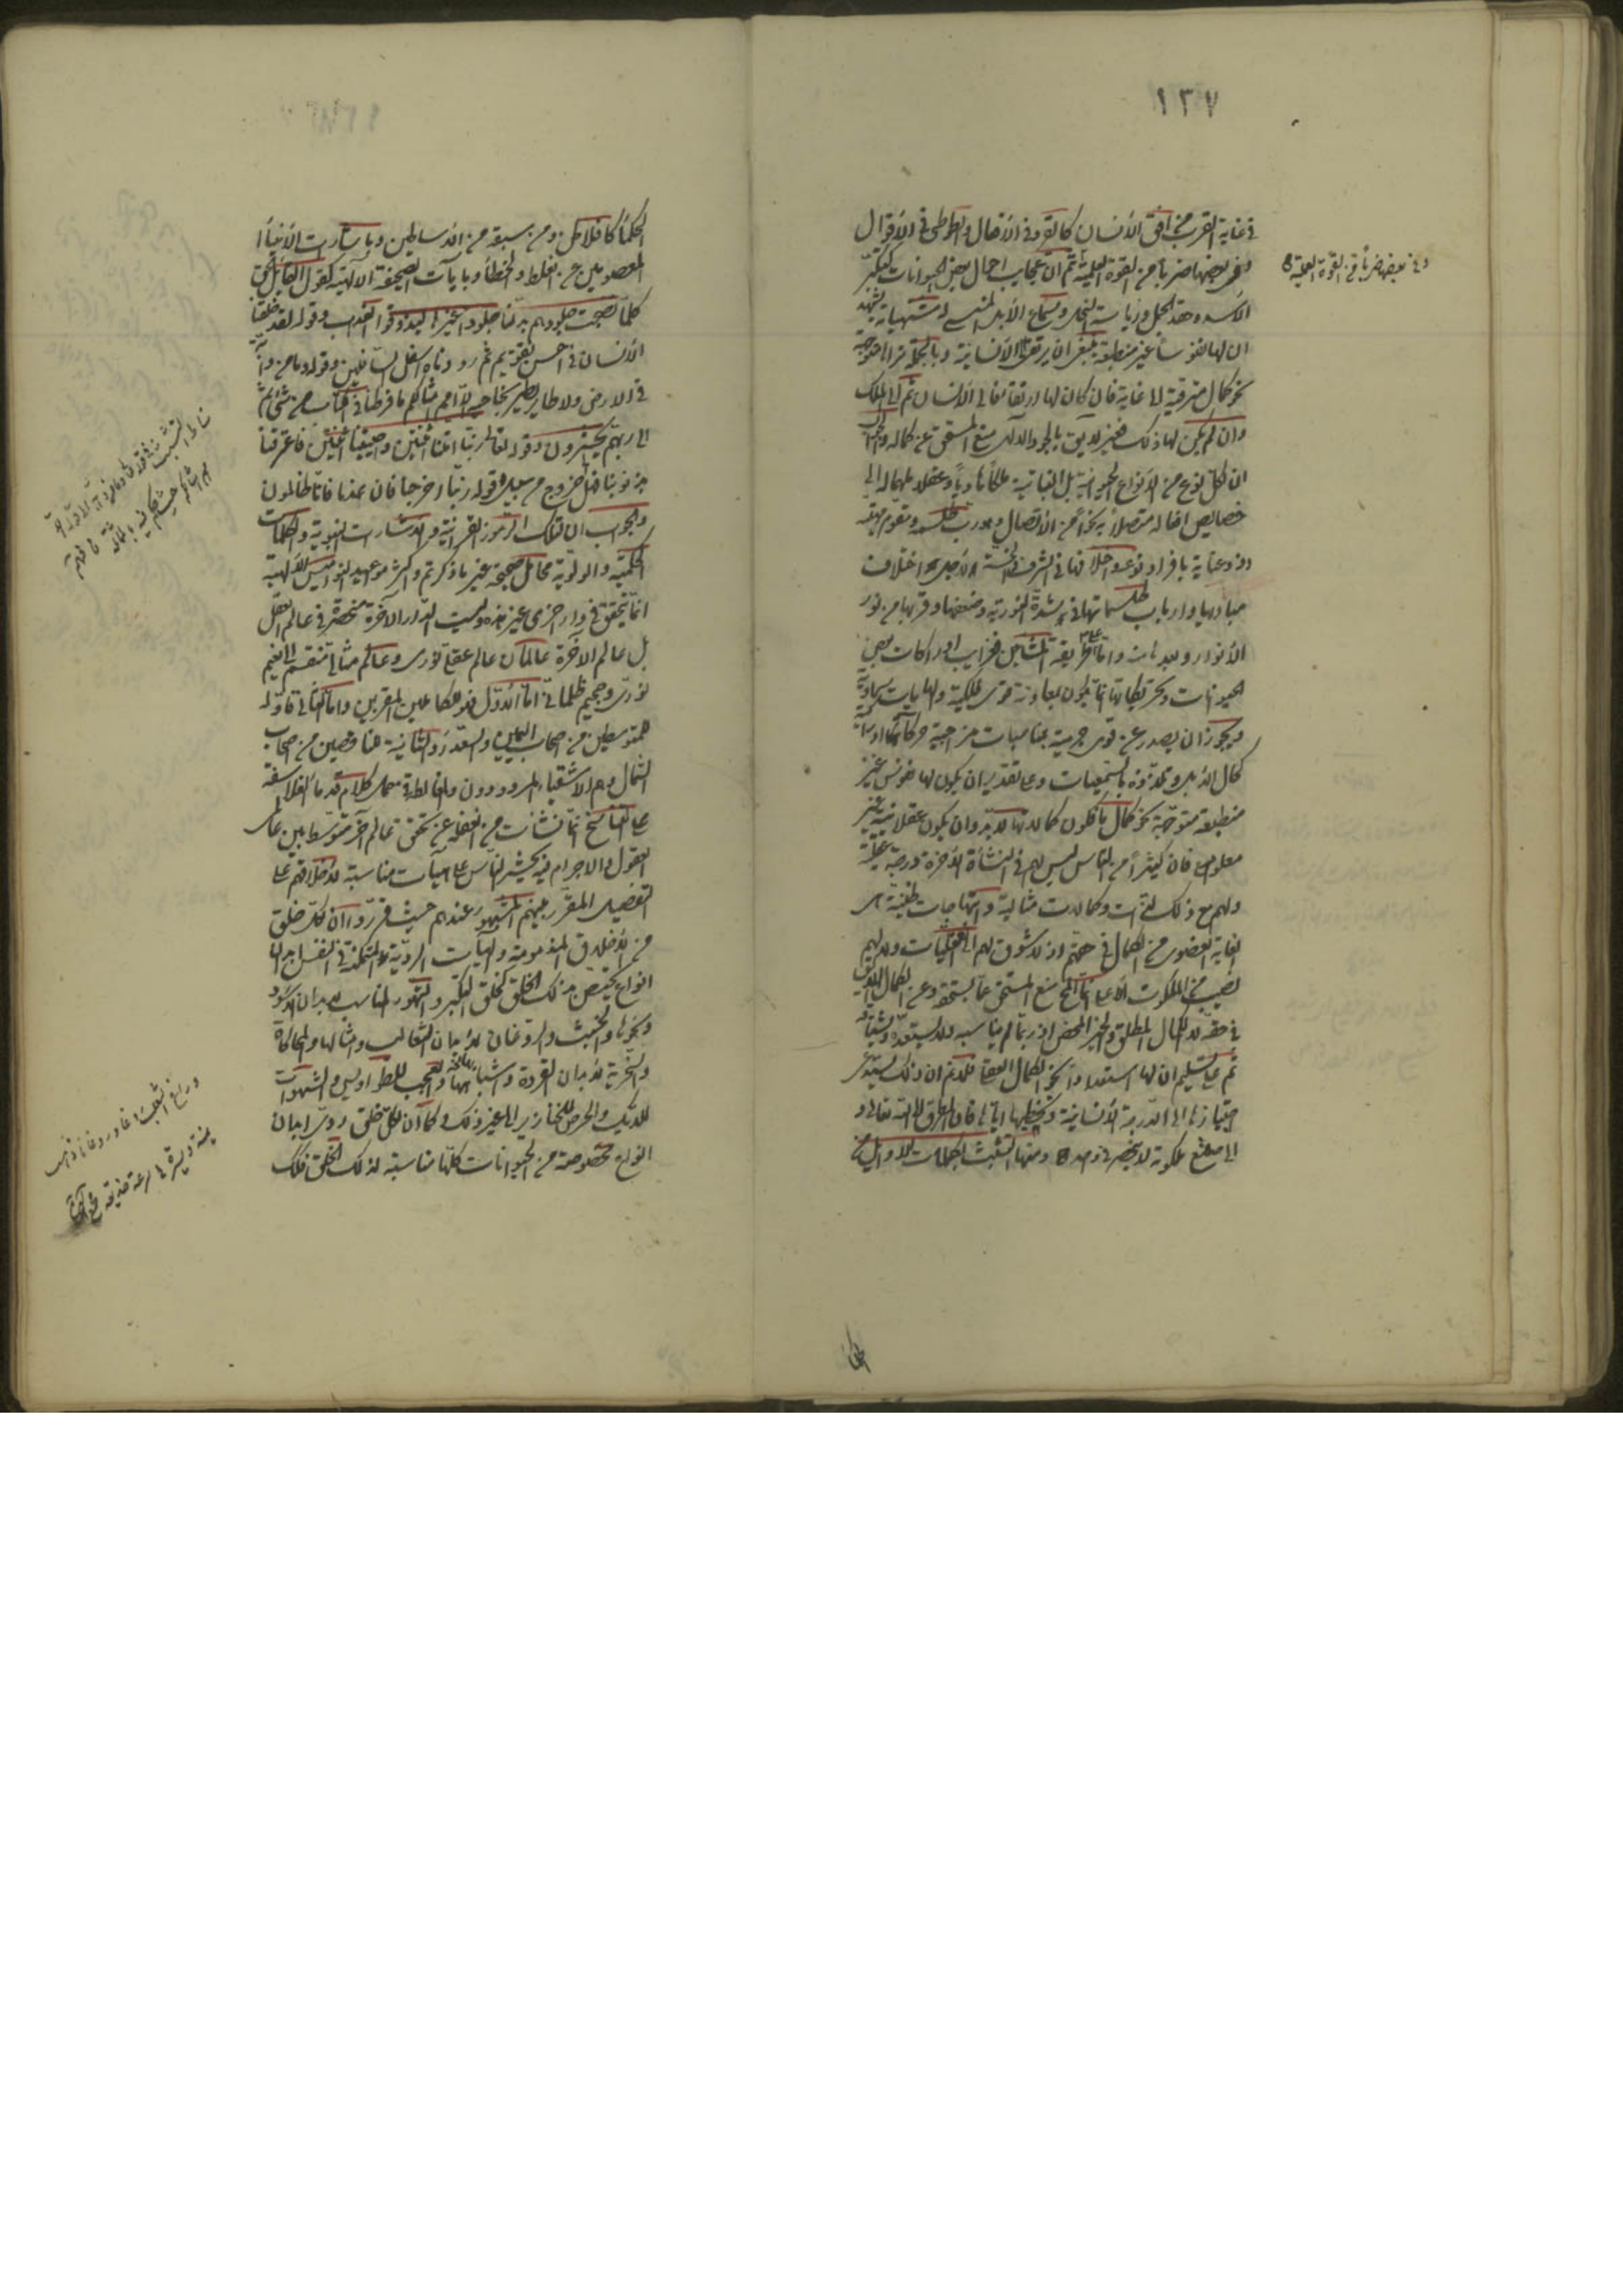 ١٣٧
في غاية القرب من افق الأنسان كالقرد في الأفعال والطوطى في الأقوال
وفى بعضها ضربا من القوة العلمية ثم ان عجايب احوال بعض الحيوانات كتكبّر
الأسد وحقد الجمل ورياسة النحل وسماع الأبل المنسى له مشتهياته يشهد
ان لها نفوسا غير منطبعة فينبغى ان يرتقى الى الأنسانية وبالجملة نراها متوجهة
نحو كمال مترقية الى غاية فان كان لها ارتقاء فالى الأنسان ثم الى الملك
وان لم يكن لها ذلك فغير لايق بالجود الالهى منع المستحق عن كماله والجواب
ان لكل نوع من الأنواع الحيوانية بل النباتية ملكا هاديا وعقلا ملهما له الى
خصايص افعاله متصلا به نحوا من الأتصال هو رب طلسمه ومقوم مهيته
وذو عناية بافراد نوعه واختلافها في الشرف والخسة لأجل اختلاف
مباديها وارباب طلسماتها في شدة النورية وضعفها وقربها من نور
الأنوار وبعدها منه واما على طريقة المشائين فغرايب ادراكات بعض
الحيوانات وتحريكاتها انما يكون بمعاونة قوى فلكية والهامات سماوية
ويجوز ان يصدر عن قوى جرمية بمناسبات مزاجية حركات وادراكات
كحال الأبل وتلذذه بالسمعيات وعلى تقدير ان يكون لها نفوس غير
منطبعة متوجهة نحو كمال ما فكون كمالاتها لابد وان يكون عقلانية غير
معلوم فان كثيرا من الناس ليس لهم في النشأة الآخرة درجة عقلية
ولهم مع ذلك لذات وكمالات مثالية وابتهاجات ظنية هى
الغاية القصوى من الكمال في حقهم اذ لا شوق لهم الى العقليات ولا لهم
نصيب من الملكوت الأعلى والمحال منع المستحق عما يستحقه وعن الكمال اللايق
في حقه لا الكمال المطلق والخير المحض اذ ربما لم يناسبه ولا يستعده ولا يشتاقه
ثم على تسليم ان لها استعدادا نحو الكمال العقلى فلا نم ان ذلك يستدعى
اجتيازها الى الدرجة الأنسانية وتخطيها اياها فان الطرق الى الله تعالى و
الى صقع ملكوته لا ينحصر في واحد ومنها التشبث بكلمات الاوايل من
وفي بعضها ضربا من القوة العملية
الحكماء كافلاطن ومن سبقه من الأساطين وباشارات الأنبياء
المعصومين عن الغلط والخطأ وبآيات الصحيفة الالهية كقول القايل الحق
كلما نضجت جلودهم بدلناهم جلودا غيرها ليذوقوا العذاب وقوله لقد خلقنا
الأنسان في احسن تقويم ثم رددناه اسفل السافلين وقوله وما من دابة
في الارض ولا طاير يطير بجناحيه الا امم امثالكم ما فرطنا في الكتاب من شئ ثم
الى ربهم يحشرون وقوله تعالى ربنا امتنا اثنتين واحييتنا اثنتين فاعترفنا
بذنوبنا فهل الى خروج من سبيل وقوله ربنا اخرجنا فان عدنا فانا ظالمون
والجواب ان لتلك الرموز القرآنية والاشارات النبوية والكلمات
الحكمية والاولوية محامل صحيحة غير ما ذكرتم واكثر مواعيد النواميس الالهية
انما تحقق في دار اخرى غير هذه وليست الدار الآخرة منحصرة في عالم العقل
بل عالم الاخرة عالمان عالم عقلى نورى وعالم مثالى تنقسم الى نعيم
نورى وجحيم ظلمانى اما الأول فهو للكاملين المقربين واما الثانى فاوله
للمتوسطين من اصحاب اليمين والسعداء والثانية للناقصين من اصحاب
الشمال وهم الأشقياء المردودون وانما المغالطة في حمل كلام قدماء الفلاسفة
على التناسخ انما نشأت من الغفلة عن تحقق عالم آخر متوسط بين عالمى
العقول والاجرام فيه يحشر الناس على هيآت مناسبة لأخلاقهم على
التفصيل المقرر بينهم المشهور عندهم حيث قرروا ان لكل خلق
من الأخلاق المذمومة والهيآت الردية المتمكنة في النفس ابدان
انواع تختص بذلك الخلق كخلق التكبر والتهور المناسب لأبدان الاسود
ونحوها والخبث والروغان لأبدان الثعالب وامثالها والمحاكاة
والسخرية لأبدان القردة واشباهها والعجب للطواويس والشهوات
للديك والحرص للخنازير الى غير ذلك وكما ان لكل خلق ردى ابدان
انواع مخصوصة من الحيوانات كلها مناسبة لذلك الخلق فلك